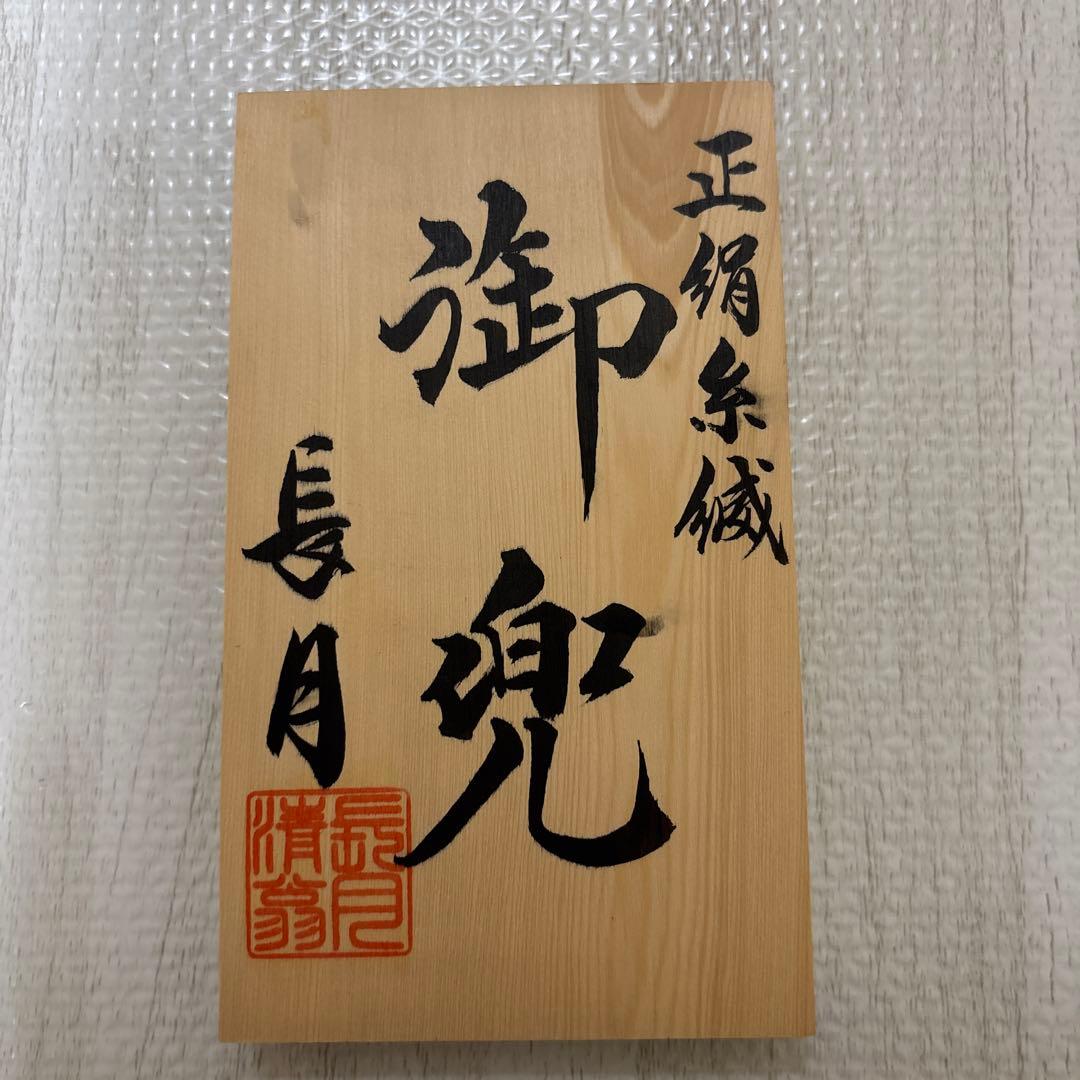 正絹糸縅
御兜
長月
長月
清翁